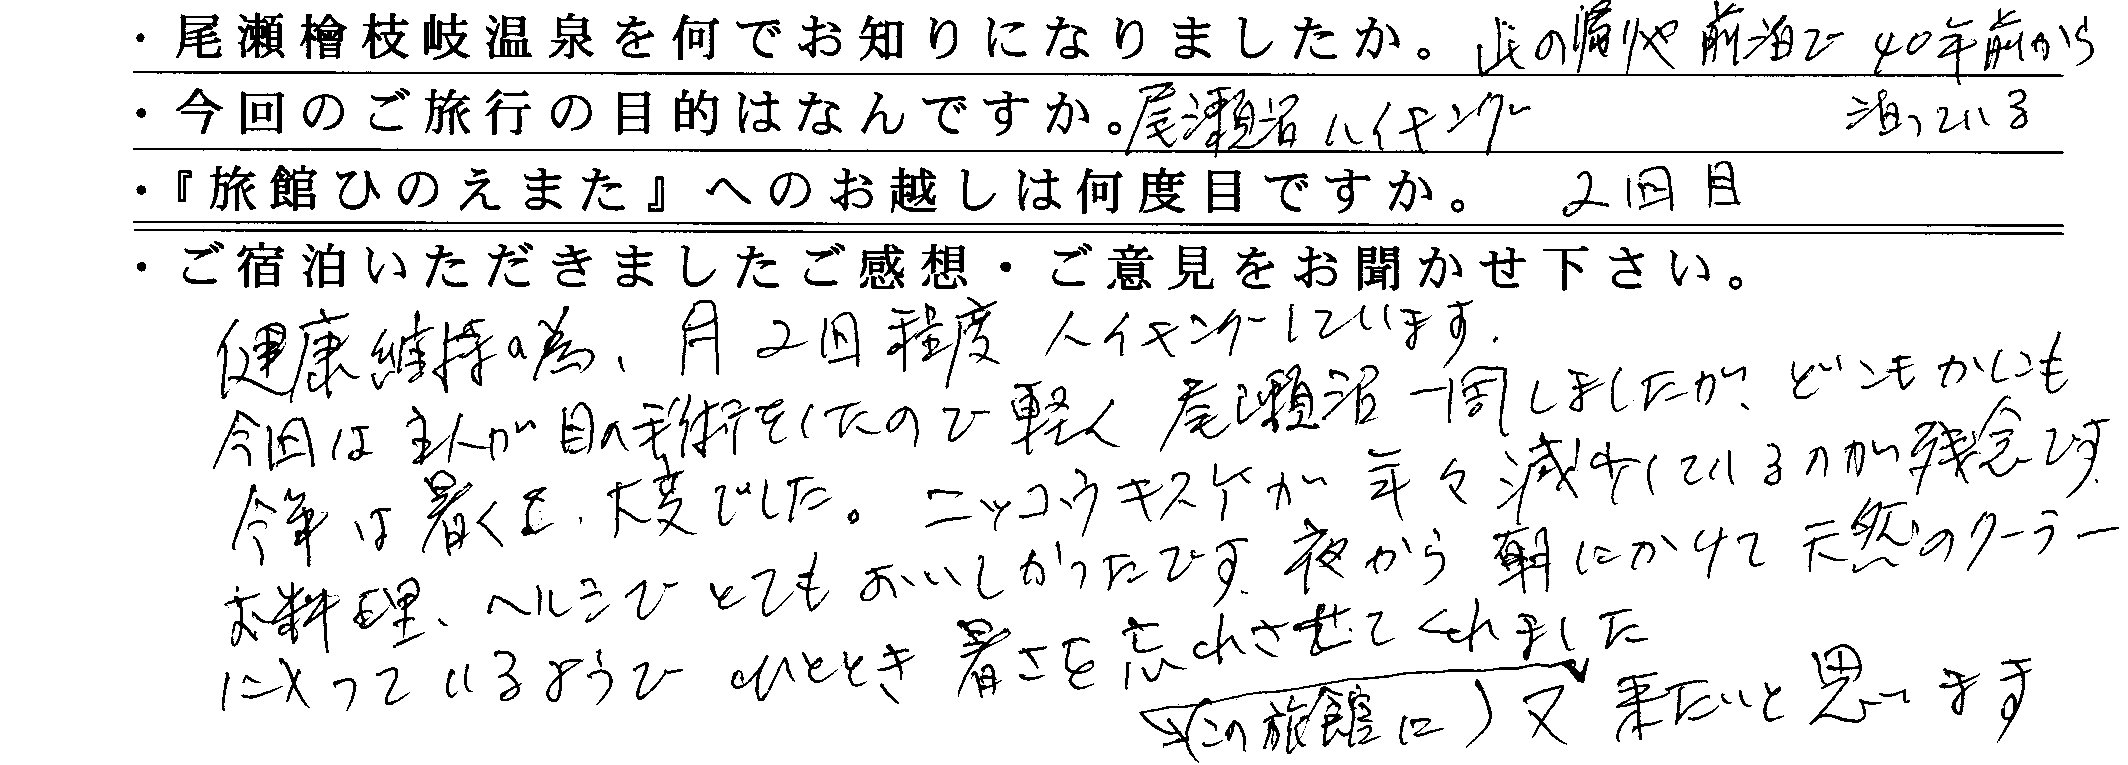 ・尾瀬檜枝岐温泉を何でお知りになりましたか。山の帰りや前泊で40年前から
・今回のご旅行の目的はなんですか。尾瀬沼ハイキング 泊っている
・『旅館ひのえまた』へのお越しは何度目ですか。 2回目
・ご宿泊いただきましたご感想・ご意見をお聞かせ下さい。
健康維持の為、月2回程度ハイキングしています.
今回は主人が目の手術をしたので軽く尾瀬沼一周しましたが、どこもかしこも
今年は暑くて、大変でした。ニッコウキスゲが年々減少しているのが残念です.
お料理、ヘルシーでとてもおいしかったです.夜から朝にかけて天然のクーラー
に入っているようでひととき暑さを忘れさせてくれました
(この旅館に)又来たいと思います